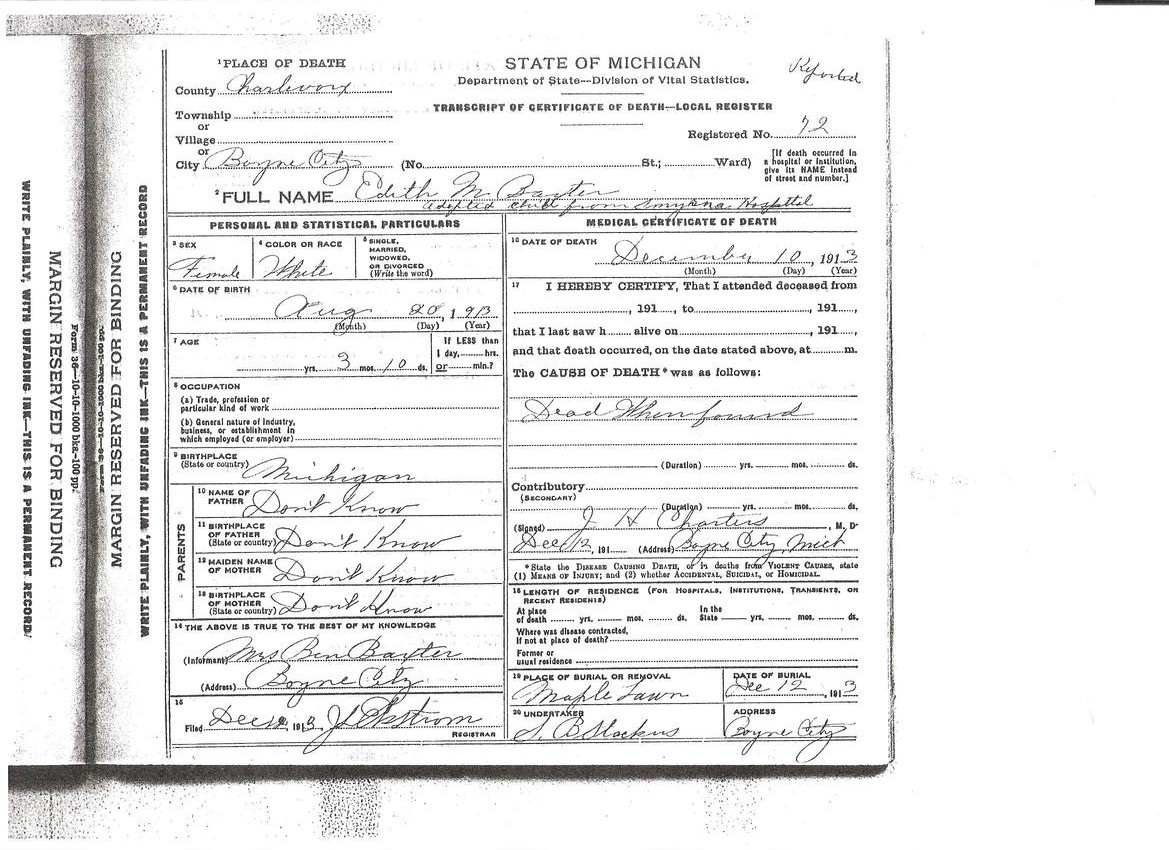 WRITE PLAINLY, WITH UNFADING INK—THIS IS A PERMANENT RECORD
MARGIN RESERVED FOR BINDING
Form 36—10-10-1000 bks.-100 pp.
MARGIN RESERVED FOR BINDING
WRITE PLAINLY, WITH UNFADING INK—THIS IS A PERMANENT RECORD
1 PLACE OF DEATH
County Charlevoix
Township
or
Village
or
City Boyne City (No. St.; Ward)
STATE OF MICHIGAN
Department of State—Division of Vital Statistics.
TRANSCRIPT OF CERTIFICATE OF DEATH—LOCAL REGISTER
Registered No. 72
[If death occurred in
a hospital or institution,
give its NAME instead
of street and number.]
2 FULL NAME Edith M. Baxter
adopted child from Smyrna Hospital
PERSONAL AND STATISTICAL PARTICULARS
3 SEX
Female
4 COLOR OR RACE
White
5 SINGLE,
MARRIED,
WIDOWED,
OR DIVORCED
(Write the word)
6 DATE OF BIRTH
Aug 20, 1913
(Month) (Day) (Year)
7 AGE
yrs. 3 mos. 10 ds.
If LESS than
1 day, hrs.
or min.?
8 OCCUPATION
(a) Trade, profession or
particular kind of work
(b) General nature of industry,
business, or establishment in
which employed (or employer)
9 BIRTHPLACE
(State or country) Michigan
PARENTS
10 NAME OF
FATHER Don't Know
11 BIRTHPLACE
OF FATHER
(State or country) Don't Know
12 MAIDEN NAME
OF MOTHER Don't Know
13 BIRTHPLACE
OF MOTHER
(State or country) Don't Know
14 THE ABOVE IS TRUE TO THE BEST OF MY KNOWLEDGE
(Informant) Mrs Ben Baxter
(Address) Boyne City
15
Filed Dec 1913
REGISTRAR
MEDICAL CERTIFICATE OF DEATH
16 DATE OF DEATH
December 10, 1913
(Month) (Day) (Year)
17 I HEREBY CERTIFY, That I attended deceased from
, 191 , to , 191 ,
that I last saw h alive on , 191 ,
and that death occurred, on the date stated above, at m.
The CAUSE OF DEATH* was as follows:
Dead When found
(Duration) yrs. mos. ds.
Contributory
(SECONDARY)
(Duration) yrs. mos. ds.
(Signed) J H Charters, M. D.
Dec 12, 191 (Address) Boyne City Mich
*State the DISEASE CAUSING DEATH, or in deaths from VIOLENT CAUSES, state
(1) MEANS OF INJURY; and (2) whether ACCIDENTAL, SUICIDAL, OR HOMICIDAL.
18 LENGTH OF RESIDENCE (FOR HOSPITALS, INSTITUTIONS, TRANSIENTS, OR
RECENT RESIDENTS)
At place
of death yrs. mos. ds.
In the
State yrs. mos. ds.
Where was disease contracted,
if not at place of death?
Former or
usual residence
19 PLACE OF BURIAL OR REMOVAL
Maple Lawn
DATE OF BURIAL
Dec 12, 1913
20 UNDERTAKER
S. B. Stackus
ADDRESS
Boyne City